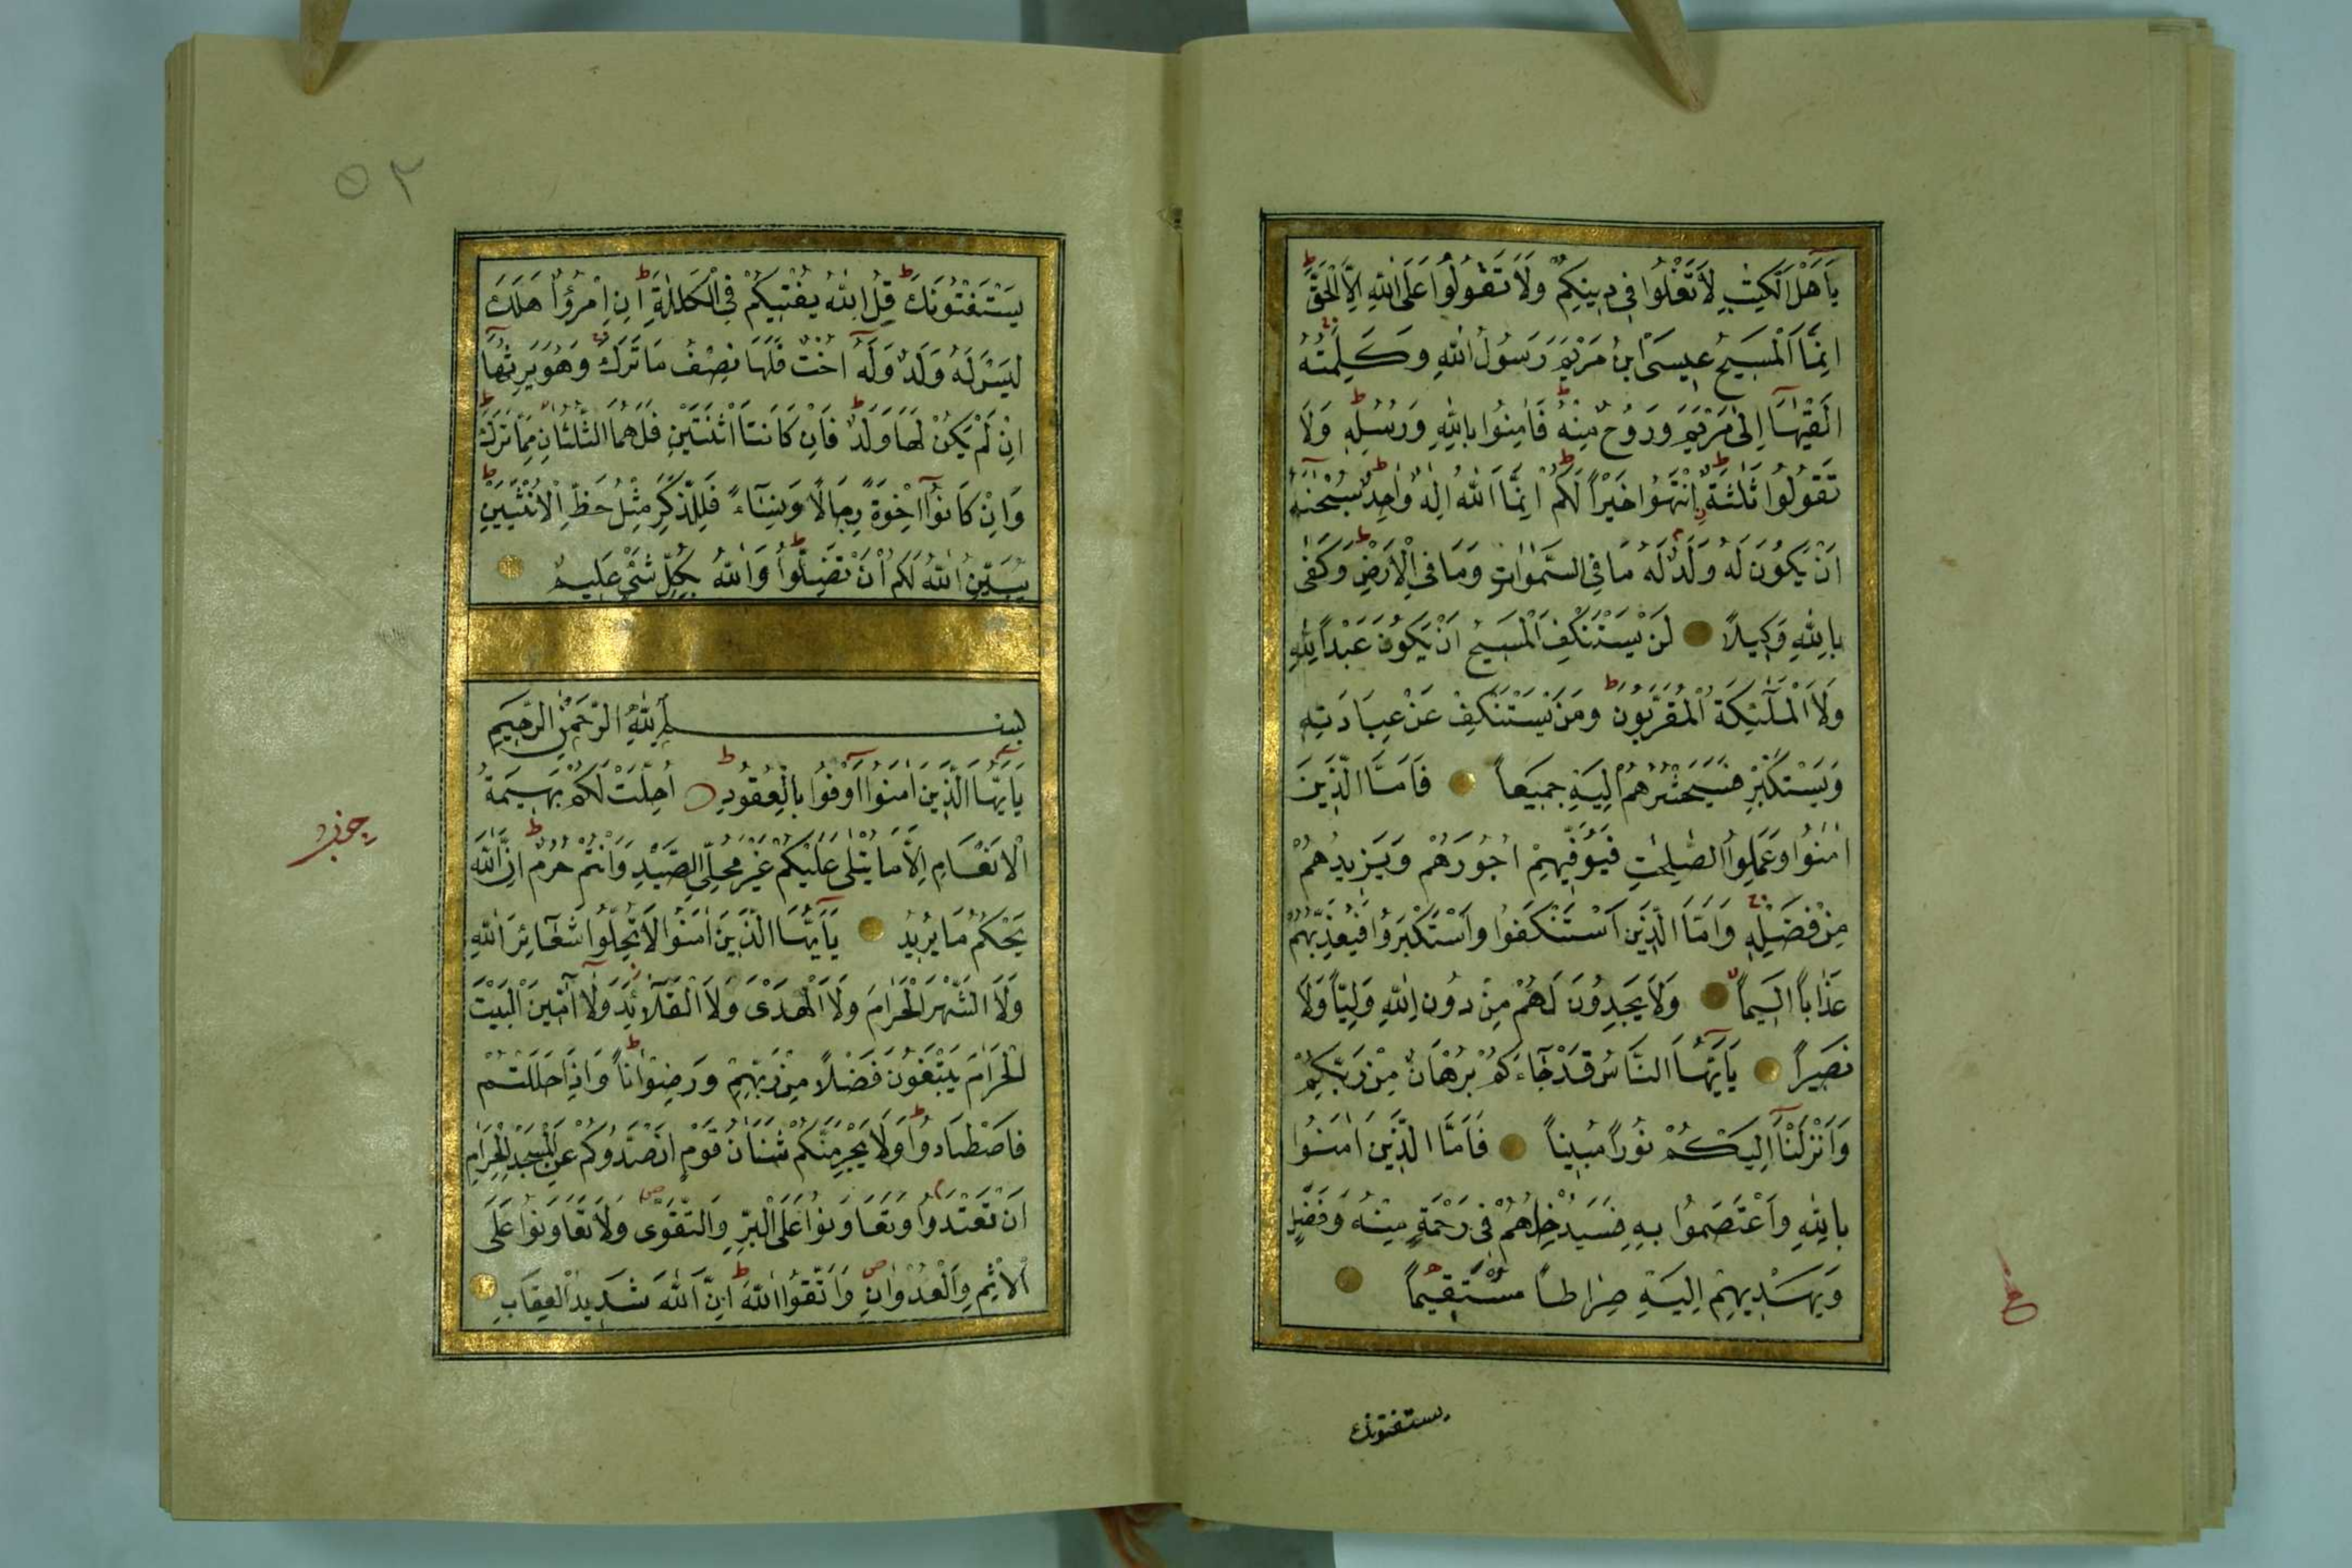 يَٓا اَهْلَ الْكِتٰبِ لَا تَغْلُوا فِي دِينِكُمْ وَلَا تَقُولُوا عَلَى اللّٰهِ اِلَّا الْحَقَّ ط
اِنَّمَا الْمَسِيحُ عِيسَى ابْنُ مَرْيَمَ رَسُولُ اللّٰهِ وَكَلِمَتُهُ
اَلْقٰيهَٓا اِلٰى مَرْيَمَ وَرُوحٌ مِنْهُ ط فَاٰمِنُوا بِاللّٰهِ وَرُسُلِهِ ط وَلَا
تَقُولُوا ثَلٰثَةٌ ط اِنْتَهُوا خَيْرًا لَكُمْ ط اِنَّمَا اللّٰهُ اِلٰهٌ وَاحِدٌ ط سُبْحٰنَهُٓ
اَنْ يَكُونَ لَهُ وَلَدٌ م لَهُ مَا فِي السَّمٰوَاتِ وَمَا فِي الْاَرْضِ ط وَكَفٰى
بِاللّٰهِ وَكِيلًا لَنْ يَسْتَنْكِفَ الْمَسِيحُ اَنْ يَكُونَ عَبْدًا لِلّٰهِ
وَلَا الْمَلٰٓئِكَةُ الْمُقَرَّبُونَ ط وَمَنْ يَسْتَنْكِفْ عَنْ عِبَادَتِهِ
وَيَسْتَكْبِرْ فَسَيَحْشُرُهُمْ اِلَيْهِ جَمِيعًا فَاَمَّا الَّذِينَ
اٰمَنُوا وَعَمِلُوا الصّٰلِحٰتِ فَيُوَفِّيهِمْ اُجُورَهُمْ وَيَزِيدُهُمْ
مِنْ فَضْلِهِ وَاَمَّا الَّذِينَ اسْتَنْكَفُوا وَاسْتَكْبَرُوا فَيُعَذِّبُهُمْ
عَذَابًا اَلِيمًا لا وَلَا يَجِدُونَ لَهُمْ مِنْ دُونِ اللّٰهِ وَلِيًّا وَلَا
نَصِيرًا يَٓا اَيُّهَا النَّاسُ قَدْ جَٓاءَكُمْ بُرْهَانٌ مِنْ رَبِّكُمْ
وَاَنْزَلْنَٓا اِلَيْكُمْ نُورًا مُبِينًا فَاَمَّا الَّذِينَ اٰمَنُوا
بِاللّٰهِ وَاعْتَصَمُوا بِهِ فَسَيُدْخِلُهُمْ فِي رَحْمَةٍ مِنْهُ وَفَضْلٍ
وَيَهْدِيهِمْ اِلَيْهِ صِرَاطًا مُسْتَقِيمًا
يستفتونك
٥٢
يَسْتَفْتُونَكَ ط قُلِ اللّٰهُ يُفْتِيكُمْ فِي الْكَلٰلَةِ ط اِنِ امْرُؤٌا هَلَكَ
لَيْسَ لَهُ وَلَدٌ وَلَهُٓ اُخْتٌ فَلَهَا نِصْفُ مَا تَرَكَ وَهُوَ يَرِثُهَٓا
اِنْ لَمْ يَكُنْ لَهَا وَلَدٌ ط فَاِنْ كَانَتَا اثْنَتَيْنِ فَلَهُمَا الثُّلُثَانِ مِمَّا تَرَكَ ط
وَاِنْ كَانُٓوا اِخْوَةً رِجَالًا وَنِسَٓاءً فَلِلذَّكَرِ مِثْلُ حَظِّ الْاُنْثَيَيْنِ ط
يُبَيِّنُ اللّٰهُ لَكُمْ اَنْ تَضِلُّوا ط وَاللّٰهُ بِكُلِّ شَيْءٍ عَلِيمٌ
بِسْمِ اللّٰهِ الرَّحْمٰنِ الرَّحِيمِ
يَٓا اَيُّهَا الَّذِينَ اٰمَنُٓوا اَوْفُوا بِالْعُقُودِ ط اُحِلَّتْ لَكُمْ بَهِيمَةُ
الْاَنْعَامِ اِلَّا مَا يُتْلٰى عَلَيْكُمْ غَيْرَ مُحِلِّي الصَّيْدِ وَاَنْتُمْ حُرُمٌ ط اِنَّ اللّٰهَ
يَحْكُمُ مَا يُرِيدُ يَٓا اَيُّهَا الَّذِينَ اٰمَنُوا لَا تُحِلُّوا شَعَٓائِرَ اللّٰهِ
وَلَا الشَّهْرَ الْحَرَامَ وَلَا الْهَدْىَ وَلَا الْقَلَٓائِدَ وَلَٓا اٰمِّينَ الْبَيْتَ
الْحَرَامَ يَبْتَغُونَ فَضْلًا مِنْ رَبِّهِمْ وَرِضْوَانًا ط وَاِذَا حَلَلْتُمْ
فَاصْطَادُوا ط وَلَا يَجْرِمَنَّكُمْ شَنَاٰنُ قَوْمٍ اَنْ صَدُّوكُمْ عَنِ الْمَسْجِدِ الْحَرَامِ
اَنْ تَعْتَدُوا م وَتَعَاوَنُوا عَلَى الْبِرِّ وَالتَّقْوٰى ص وَلَا تَعَاوَنُوا عَلَى
الْاِثْمِ وَالْعُدْوَانِ ص وَاتَّقُوا اللّٰهَ ط اِنَّ اللّٰهَ شَدِيدُ الْعِقَابِ